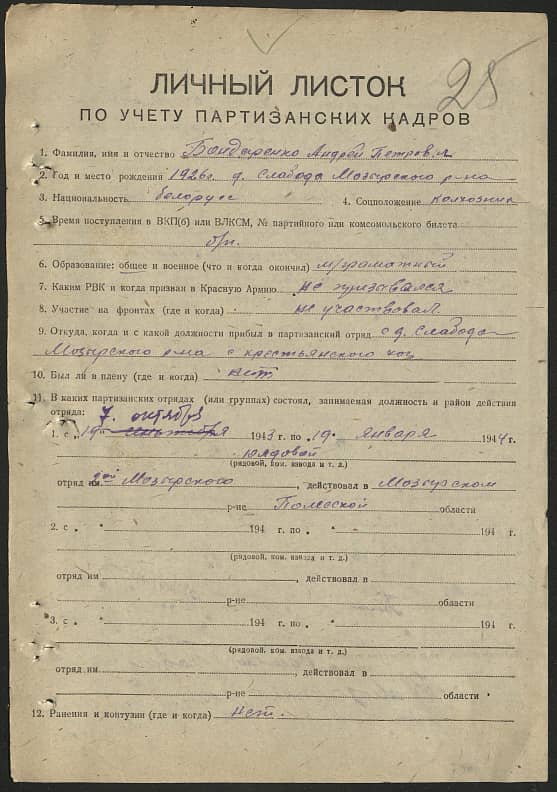 25
ЛИЧНЫЙ ЛИСТОК
ПО УЧЕТУ ПАРТИЗАНСКИХ КАДРОВ
1. Фамилия, имя и отчество Бондаренко Андрей Петрович
2. Год и место рождения 1926 г. д. Слабода Мозырского р-на
3. Национальность белорусс 4. Соцположение колхозник
5. Время поступления в ВКП(б) или ВЛКСМ, № партийного или комсомольского билета
б/п.
6. Образование: общее и военное (что и когда окончил) м/грамотный
7. Каким РВК и когда призван в Красную Армию не призывался
8. Участие на фронтах (где и когда) не участвовал
9. Откуда, когда и с какой должности прибыл в партизанский отряд с д. Слабода
Мозырского р-на с крестьянского хоз
10. Был ли в плену (где и когда) нет
11. В каких партизанских отрядах (или группах) состоял, занимаемая должность и район действия
отряда: 7. октября
1. с „19" сентября 1943 г. по „19" января 1944 г.
рядовой
(рядовой, ком. взвода и т. д.)
отряд им. Мозырского, действовал в Мозырском
р-не Полесской области
2. с „ " 194 г. по „ " 194 г.
(рядовой, ком. взвода и т. д.)
отряд им , действовал в
р-не области
3. с „ " 194 г. по „ " 194 г.
(рядовой, ком. взвода и т. д.)
отряд им , действовал в
р-не области
12. Ранения и контузии (где и когда) нет.